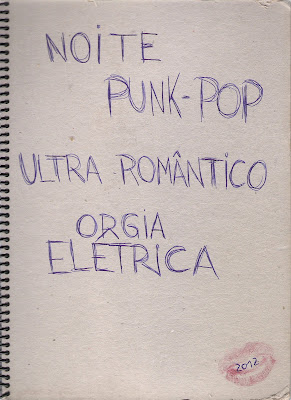 NOITE
PUNK-POP
ULTRA ROMÂNTICO
ORGIA
ELÉTRICA
2012